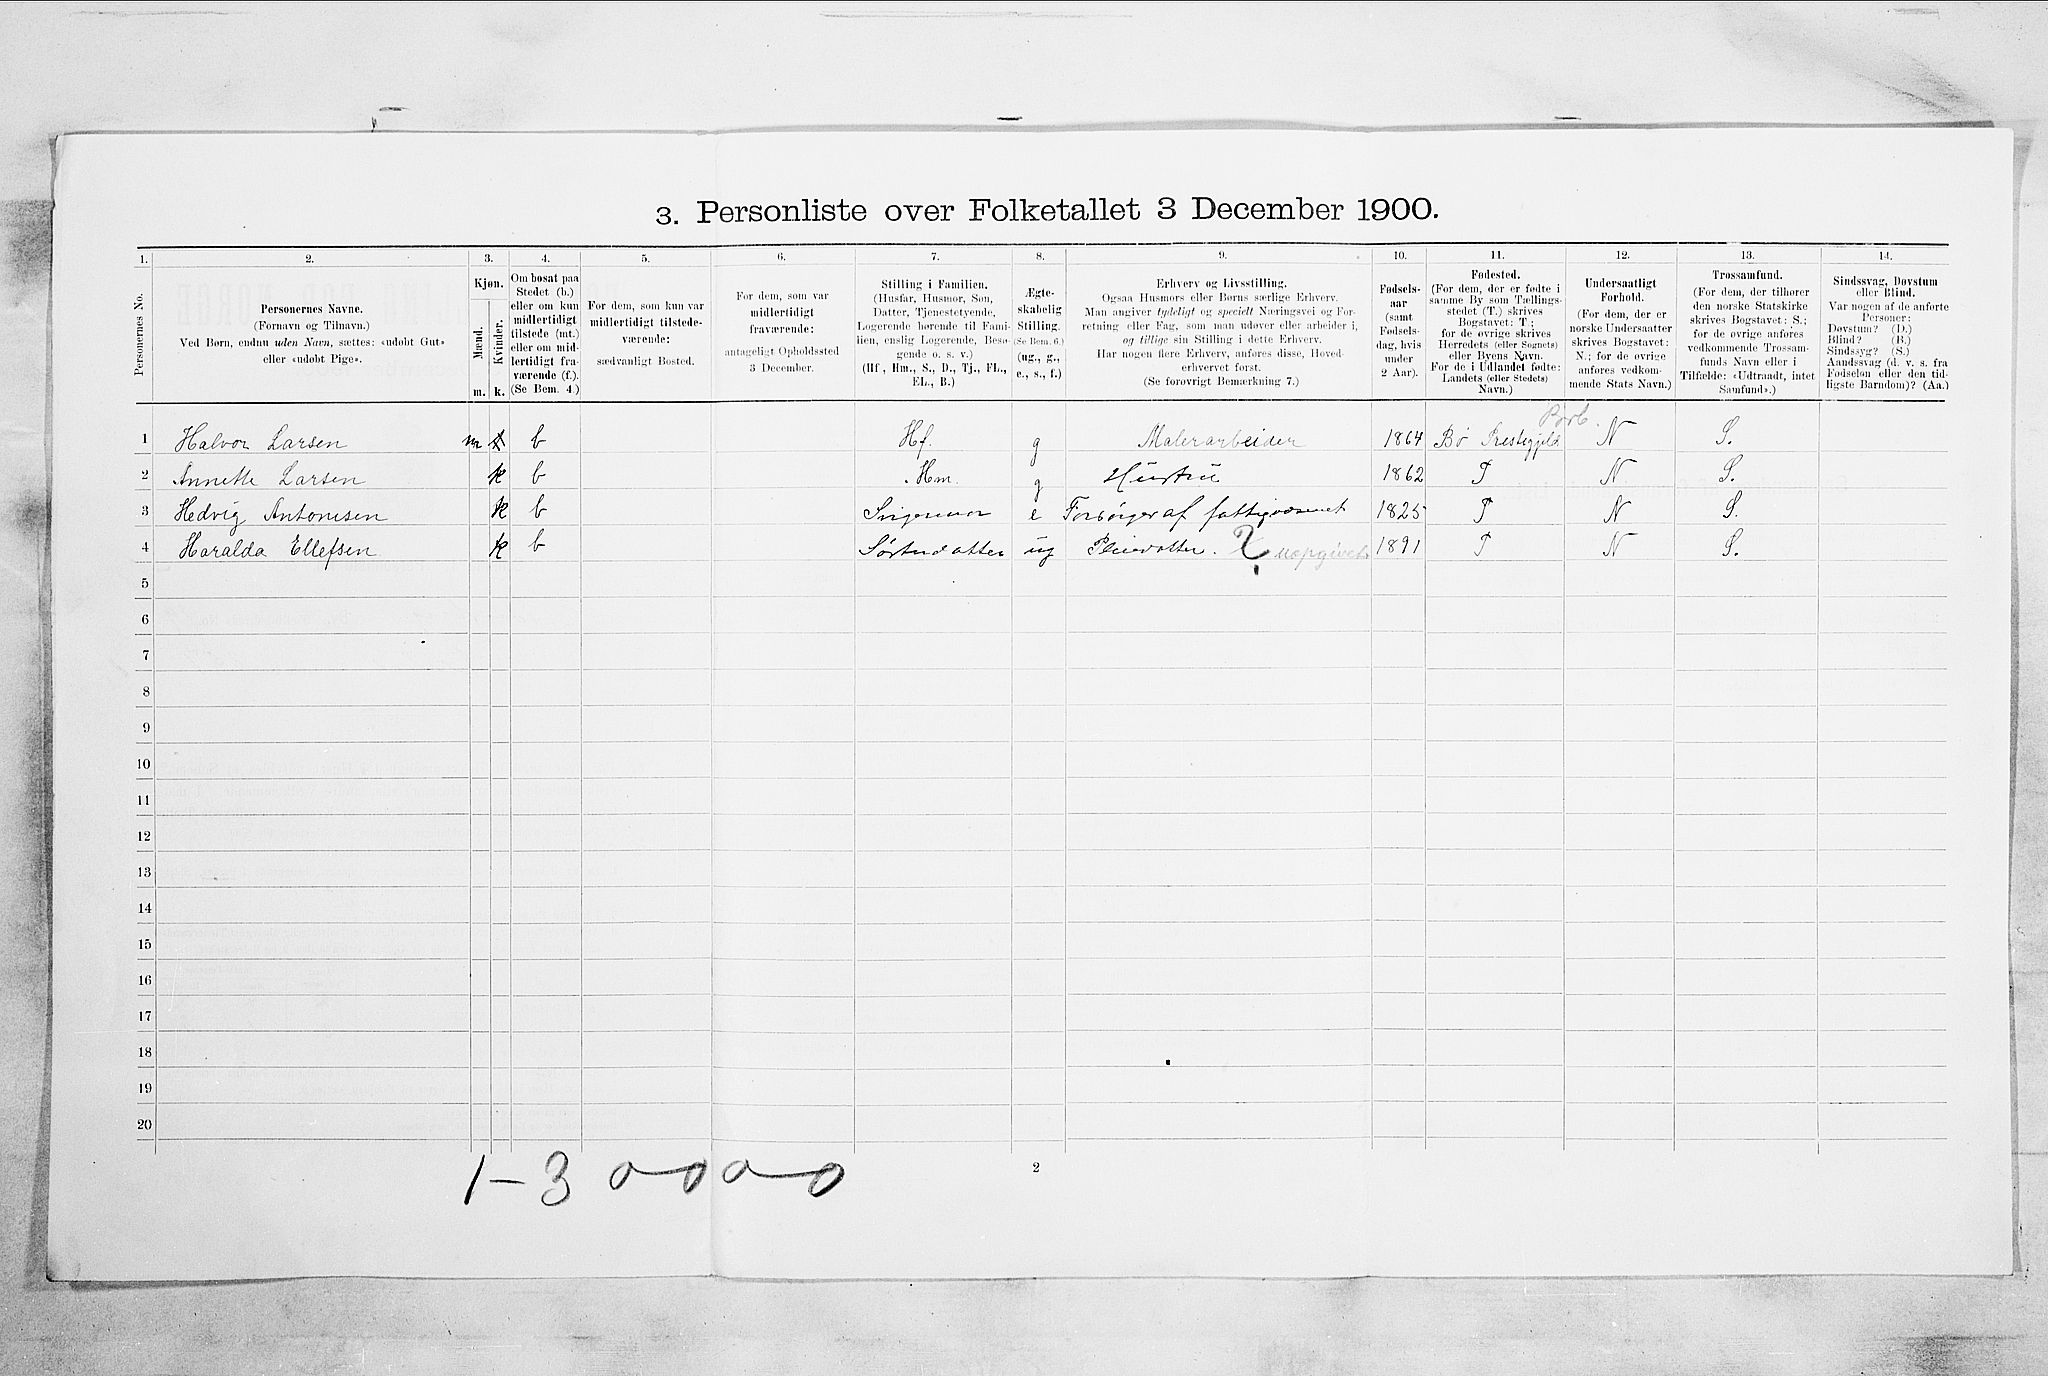 3. Personliste over Folketallet 3 December 1900.
1. 2. 3. 4. 5. 6. 7. 8. 9. 10. 11. 12. 13. 14.
Personernes No.
Personernes Navne.
(Fornavn og Tilnavn.)
Ved Børn, endnu uden Navn, sættes: «udøbt Gut»
eller «udøbt Pige».
Kjøn.
Mænd.
Kvinder.
m. k.
Om bosat paa
Stedet (b.)
eller om kun
midlertidigt
tilstede (mt.)
eller om mid-
lertidigt fra-
værende (f.).
(Se Bem. 4.)
For dem, som kun var
midlertidigt tilstede-
værende:
sædvanligt Bosted.
For dem, som var
midlertidigt
fraværende:
antageligt Opholdssted
3 December.
Stilling i Familien.
(Husfar, Husmor, Søn,
Datter, Tjenestetyende,
Logerende hørende til Fami-
lien, enslig Logerende, Besø-
gende o. s. v.)
(Hf., Hm., S., D., Tj., FL.,
EL., B.)
Ægte-
skabelig
Stilling.
(Se Bem. 6.)
(ug., g.,
e., s., f.)
Erhverv og Livsstilling.
Ogsaa Husmors eller Børns særlige Erhverv.
Man angiver tydeligt og specielt Næringsvei og For-
retning eller Fag, som man udøver eller arbeider i,
og tillige sin Stilling i dette Erhverv.
Har nogen flere Erhverv, anføres disse, Hoved-
erhvervet først.
(Se forøvrigt Bemærkning 7.)
Fødsels-
aar
(samt
Fødsels-
dag, hvis
under
2 Aar).
Fødested.
(For dem, der er fødte i
samme By som Tællings-
stedet (T.) skrives
Bogstavet: T.;
for de øvrige skrives
Herredets (eller Sognets)
eller Byens Navn.
For de i Udlandet fødte:
Landets (eller Stedets)
Navn.)
Undersaatligt
Forhold.
(For dem, der er
norske Undersaatter
skrives Bogstavet:
N.; for de øvrige
anføres vedkom-
mende Stats Navn.)
Trossamfund.
(For dem, der tilhører
den norske Statskirke
skrives Bogstavet: S.;
for de øvrige anføres
vedkommende Trossam-
funds Navn eller i
Tilfælde: «Udtraadt, intet
Samfund».)
Sindssvag, Døvstum
eller Blind.
Var nogen af de anførte
Personer:
Døvstum? (D.)
Blind? (B.)
Sindssyg? (S.)
Aandssvag (d. v. s. fra
Fødselen eller den tid-
ligste Barndom)? (Aa.)
1 Halvor Larsen m b Hf. g Malerarbeider 1864 Bø Prestegjeld N S.
2 Annette Larsen k b Hm. g Hustru 1862 T N S.
3 Hedvig Antonisen k b Svigermor e Forsørges af fattigvæsenet 1825 T N S.
4 Haralda Ellefsen k b Søsterdatter ug Pleiedatter. ? uopgivet 1891 T N S.
5
6
7
8
9
10
11
12
13
14
15
16
17
18
19
20
1 - 3 0-0 0-0
2